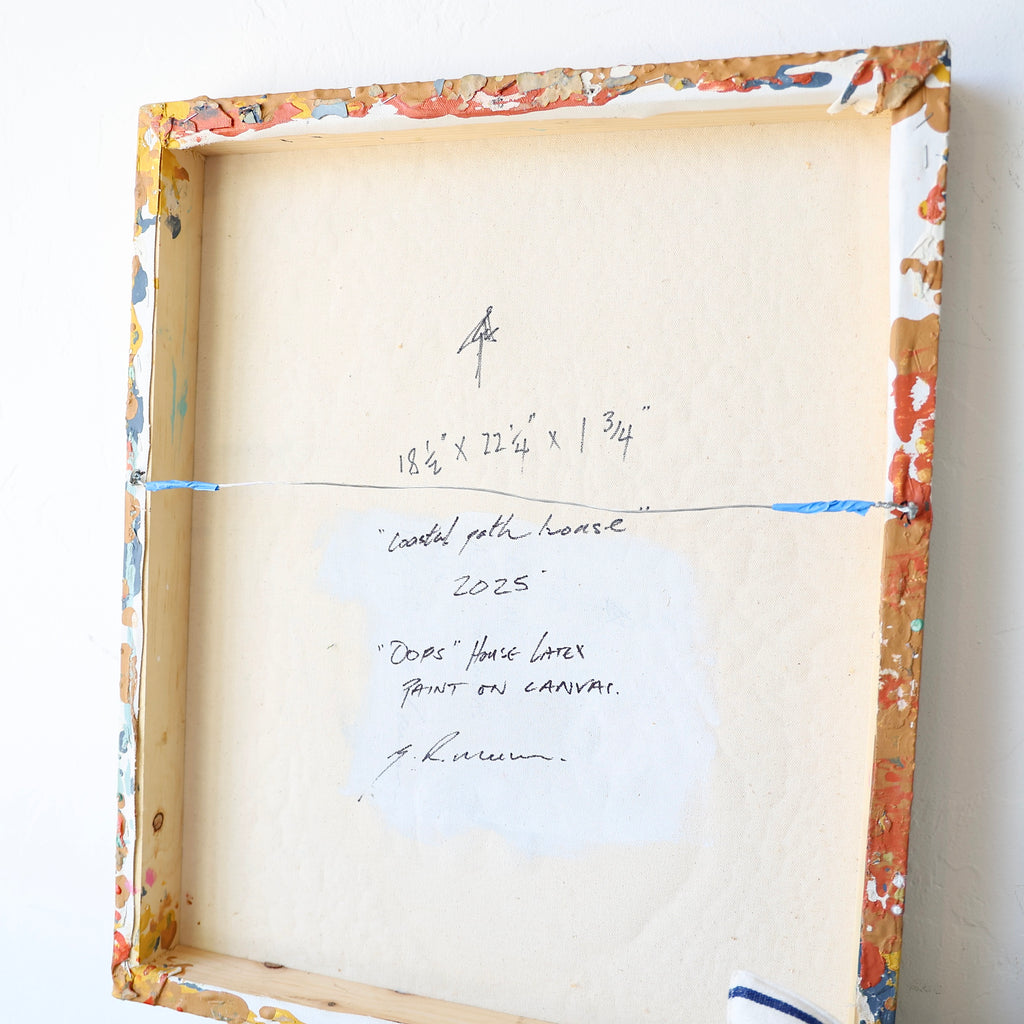 18 ½" x 22 ¼" x 1 ¾"
"coastal path house"
2025
"OOPS" HOUSE LATEX
PAINT ON CANVAS.